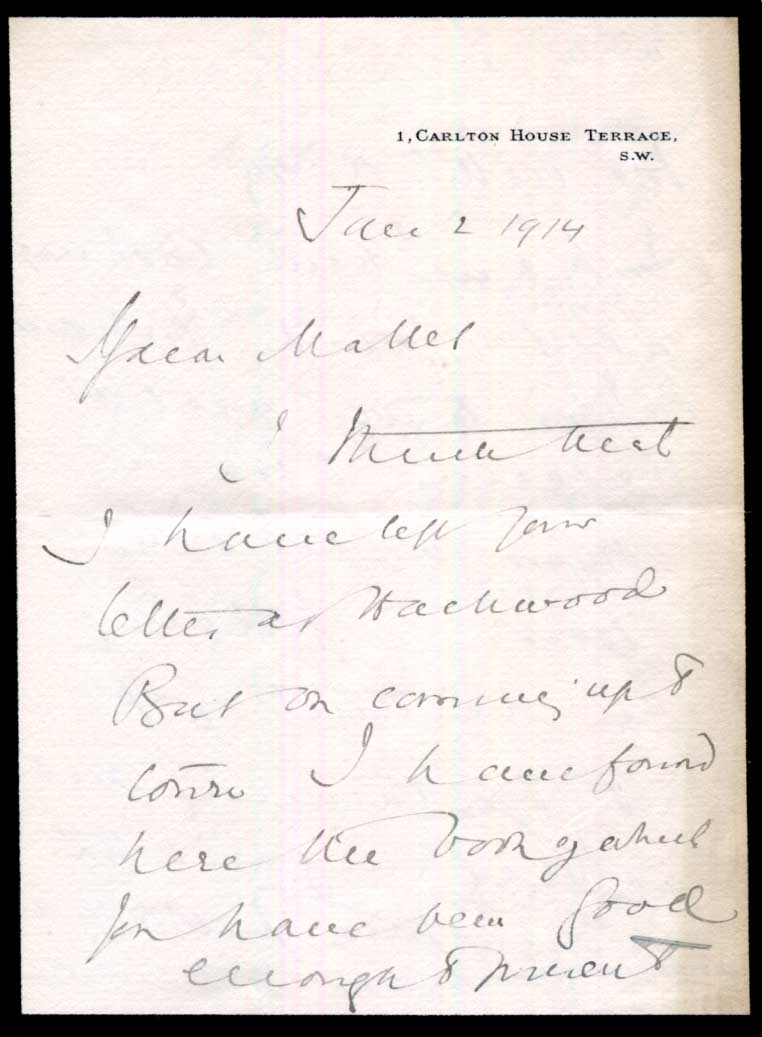 1, CARLTON HOUSE TERRACE,
S.W.
Jan 2 1914
My dear Mallet
I think that
I have left your
letter at Hackwood
But on coming up to
town I have found
here the book of which
you have been good
enough to present